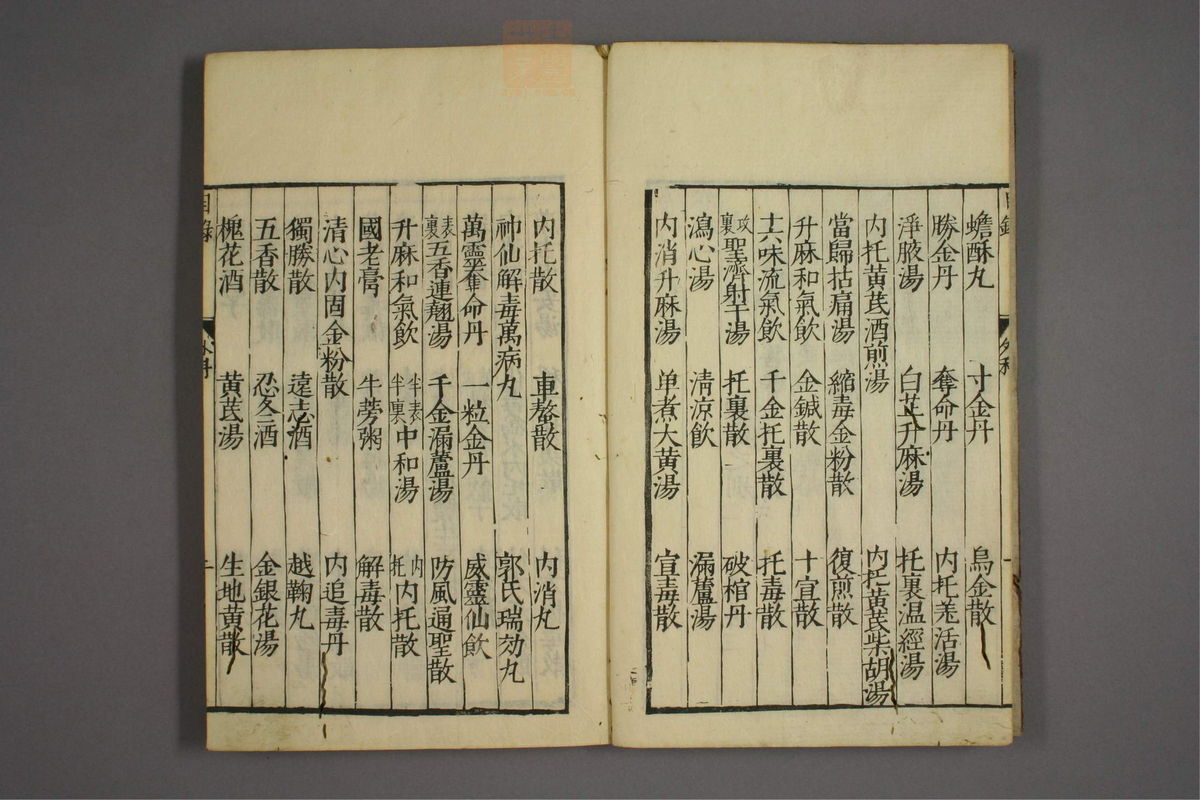 蟾酥丸 寸金丹 烏金散
勝金丹 奪命丹 内托羌活湯
淨腋湯 白芷升麻湯 托裏温經湯
内托黄芪酒煎湯 内托黄芪柴胡湯
當歸拈痛湯 縮毒金粉散 復煎散
升麻和氣飲 金鍼散 十宣散
十六味流氣飲 千金托裏散 托毒散
攻裏聖濟射干湯 托裏散 破棺丹
瀉心湯 清凉飲 漏蘆湯
内消升麻湯 单煮大黄湯 宣毒散
内托散 車螯散 内消丸
神仙解毒萬病丸 郭氏瑞効丸
萬靈奪命丹 一粒金丹 威靈仙飲
表裏五香連翹湯 千金漏蘆湯 防風通聖散
升麻和氣飲 半表半裏中和湯 内托内托散
國老膏 牛蒡粥 解毒散
清心内固金粉散 内追毒丹
獨勝散 遠志酒 越鞠丸
五香散 忍冬酒 金銀花湯
槐花酒 黄芪湯 生地黄散
目錄